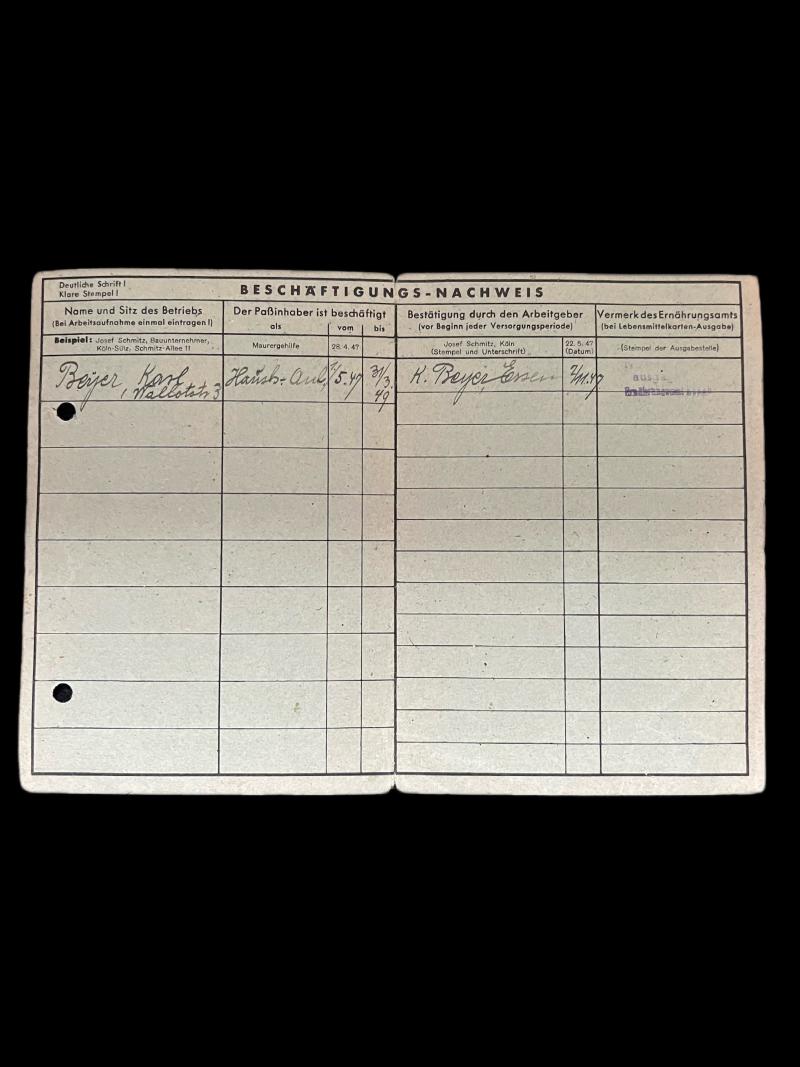 Deutliche Schrift!
Klare Stempel!
BESCHÄFTIGUNGS-NACHWEIS
Name und Sitz des Betriebs
(Bei Arbeitsaufnahme einmal eintragen!)
Der Paßinhaber ist beschäftigt
als vom bis
Bestätigung durch den Arbeitgeber
(vor Beginn jeder Versorgungsperiode)
Vermerk des Ernährungsamts
(bei Lebensmittelkarten-Ausgabe)
Beispiel: Josef Schmitz, Bauunternehmer,
Köln-Sülz, Schmitz-Allee 11
Maurergehilfe
28. 4. 47
Josef Schmitz, Köln
(Stempel und Unterschrift)
22. 5. 47
(Datum)
(Stempel der Ausgabestelle)
Beyer, Karl
Wallotstr 3
Haush.-
5.47
31/3.
49
K. Beyer, Essen